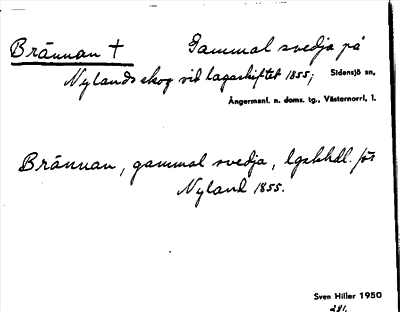 Brännan † Gammal svedja på
Nylands skog vid lagaskiftet 1855; Sidensjö sn,
Ångermanl. n. doms. tg., Västernorrl. l.
Brännan, gammal svedja, lgskhdl. för
Nyland 1855.
Sven Hiller 1950
281.